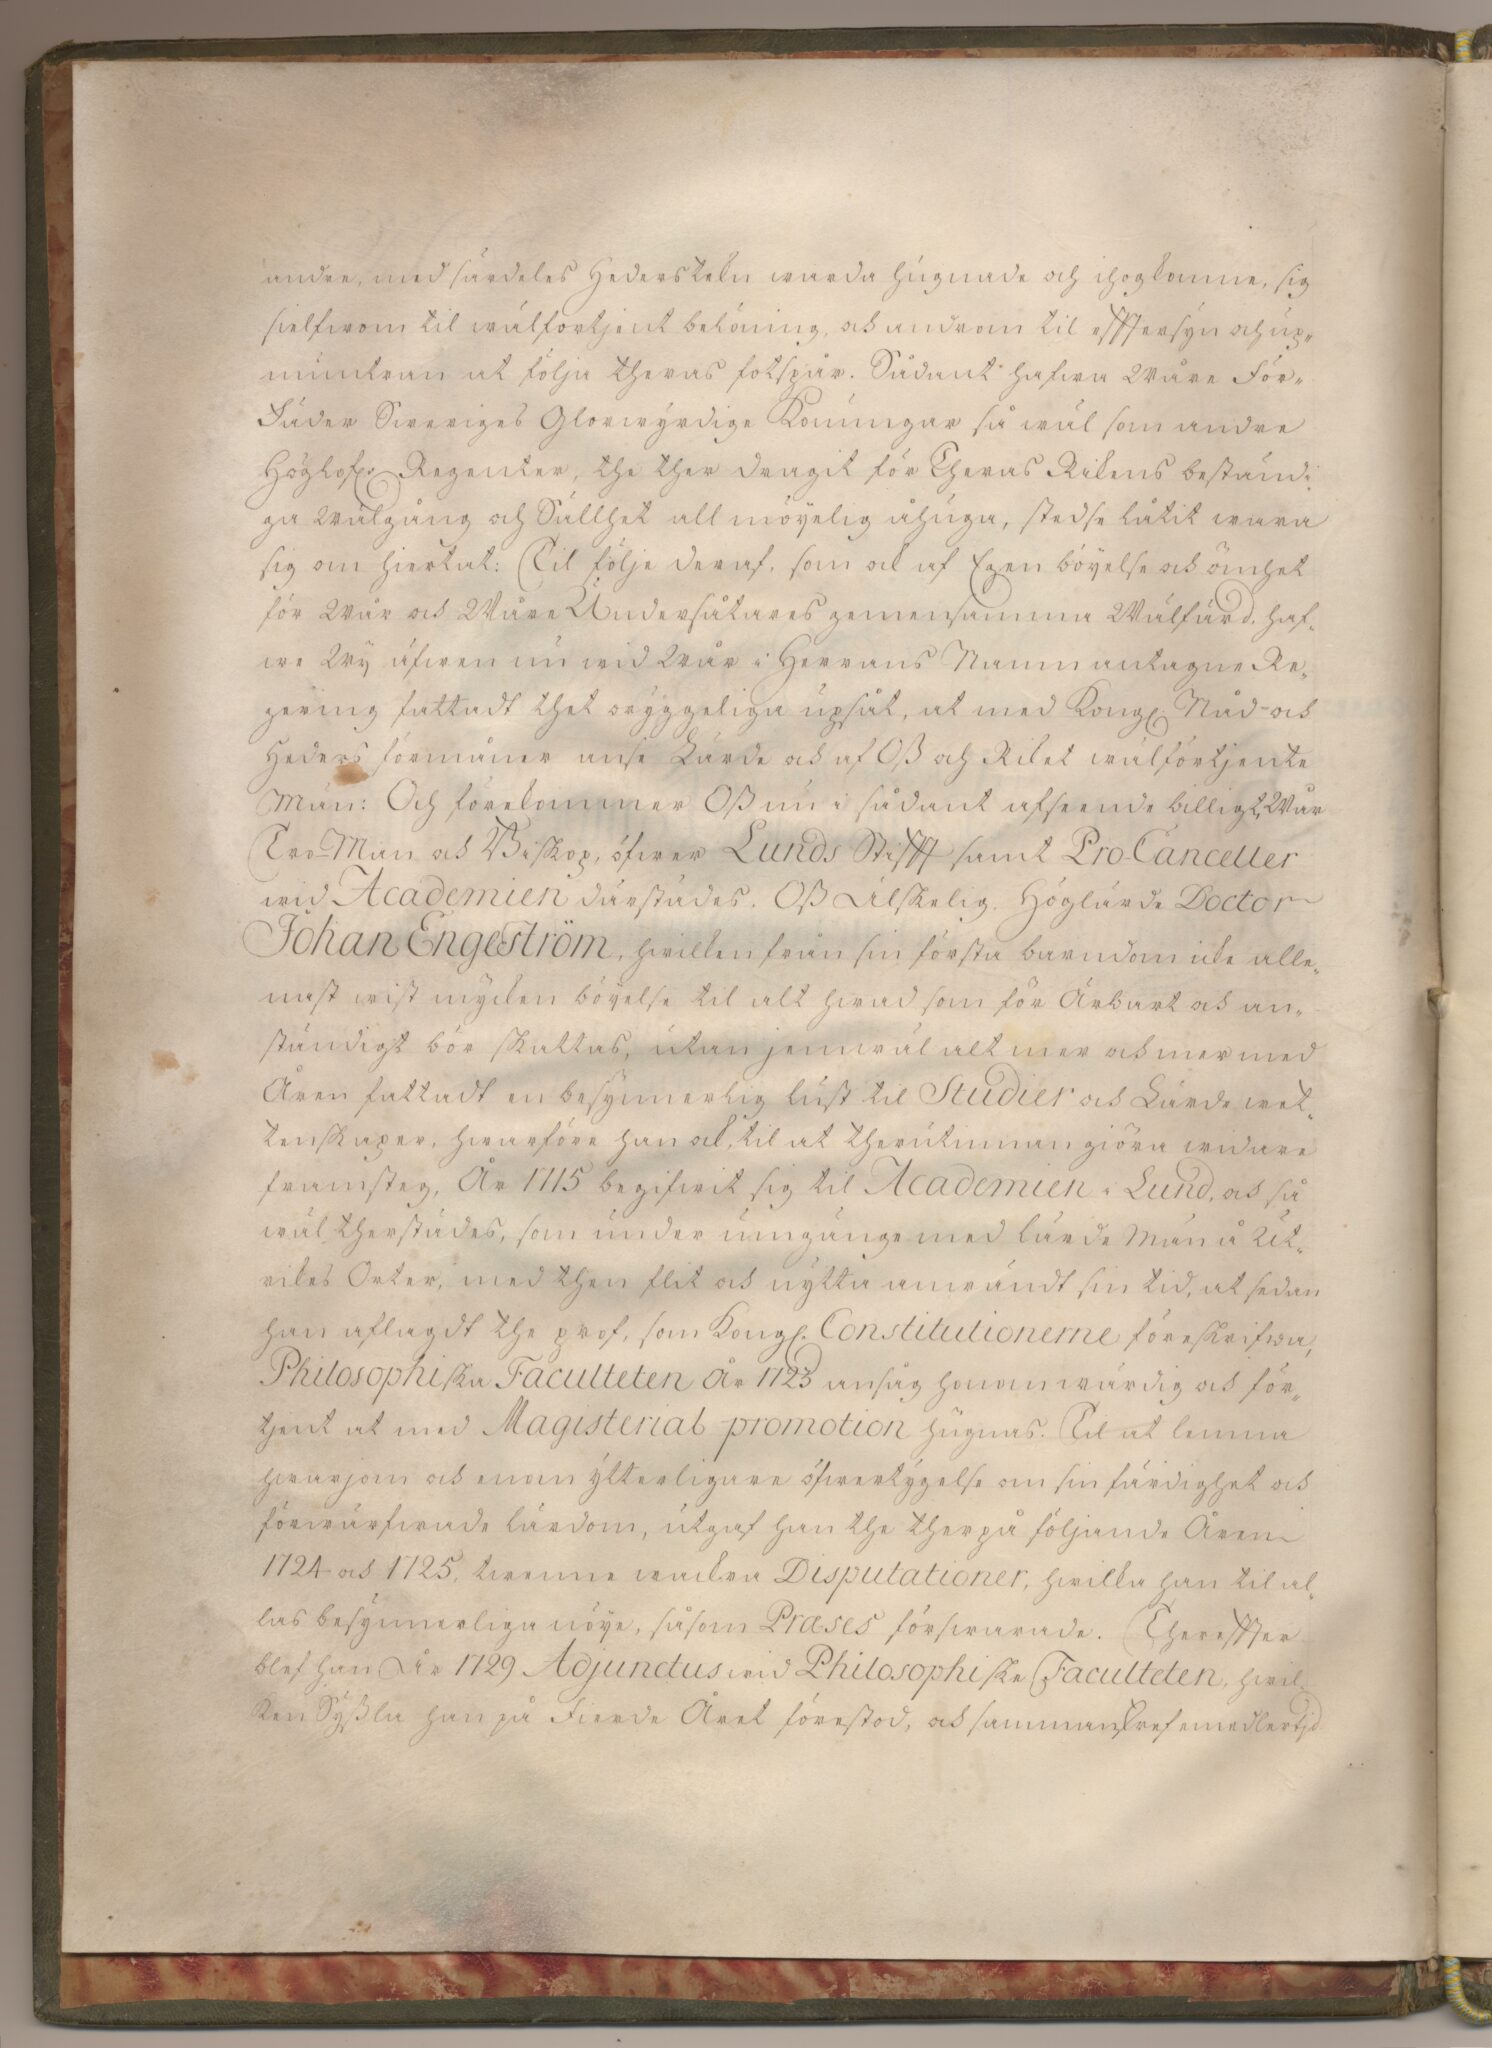 andre, med särdeles Hederstekn warda hugnade och ihogkomne, sig
sielfwom til wälfortjent beloning, ok androm til efftersyn och up„
muntran at följa theras fotspår. Sådant hafwa Wåre För„
Fäder Sweriges Glorwyrdige Konungar så wäl som andre
Höglofl. Regenter, the ther dragit för Theras Rikens bestandi„
ga Wälgång och Sällhet all möyelig åhuga, stedse låtit wara
sig om hiertat: Til följe deraf, som ok af Egen böyelse ok ömhet
för Wår ok Wåre Undersåtares gemensamma Wälfärd, haf„
we Wy äfwen nu wid Wår i Herrans Namn antagne Re„
gering fattadt thet oryggeliga upsåt, at med Kongl. Nåd- ok
Heders förmåner anse Lärde ok af Oß och Riket wälförtjente
Män: Och förekommer Oß nu i sådant afseende billigt, Wår
Tro-Man ok Biskop, öfwer Lunds Stifft samt Pro-Canceller
wid Academien därstädes, Oß Älskelig, Höglärde Doctor
Johan Engeström, hwilken från sin första barndom icke alle„
nast wist mycken böyelse til alt hwad som för Ärbart ok an„
ständigt bör skattas, utan jemwäl alt mer ok mer med
Åren fattadt en besynnerlig lust til Studier ok Lärde wet„
tenskaper, hwarföre han ok, til at therutinnan giöra widare
framsteg, År 1715 begifwit sig til Academien i Lund, ok så
wäl therstädes, som under umgänge med lärde Män å Ut„
rikes Orter, med then flit ok nytta anwändt sin tid, at sedan
han aflagdt the prof, som Kongl. Constitutionerne föreskrifwa,
Philosophiska Faculteten År 1723 ansåg honom wärdig ok för„
tjent at med Magisterial promotion hugnas. Til at lemna
hwarjom ok enom ytterligare öfwertygelse om sin färdighet ok
förwärfwade lärdom, utgaf han the therpå följande Åren
1724 ok 1725, twenne wackra Disputationer, hwilka han til al„
las besynnerliga nöye, såsom Præses förswarade. Therefter
blef han År 1729 Adjunctus wid Philosophiske Faculteten, hwil„
ken Syßla han på Fierde Året förestod, ok sammanskref emedlertjd